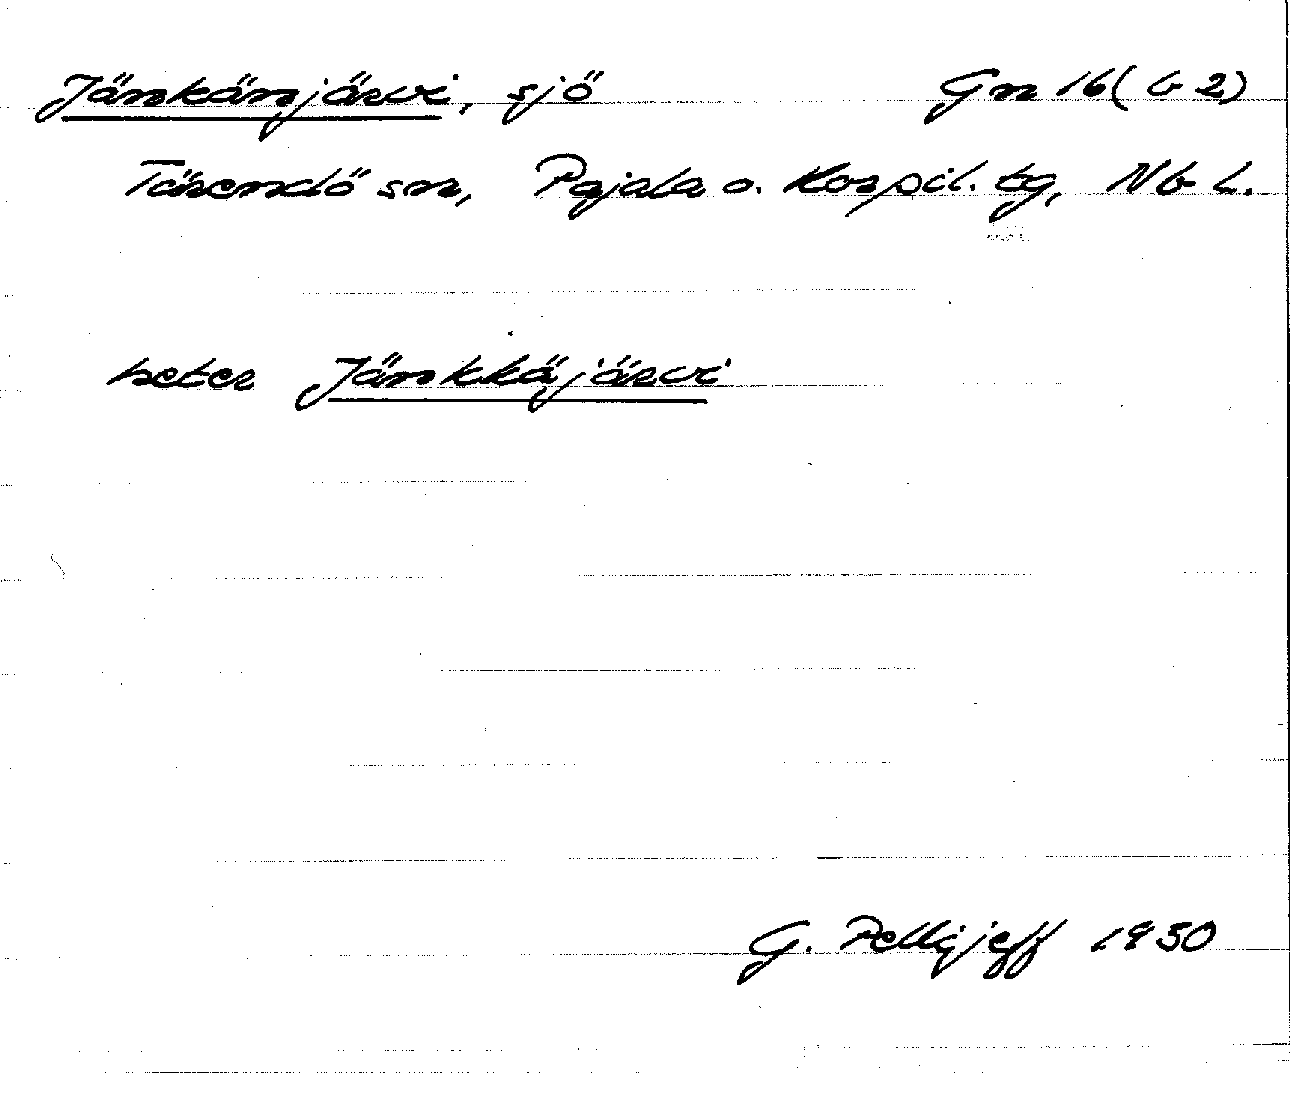 Jänkänjärvi, sjö Gn 16 (b 2)
Tärendö sn, Pajala o. Korpil. tg, Nb L.
heter Jänkkäjärvi
G. Pellijeff 1950